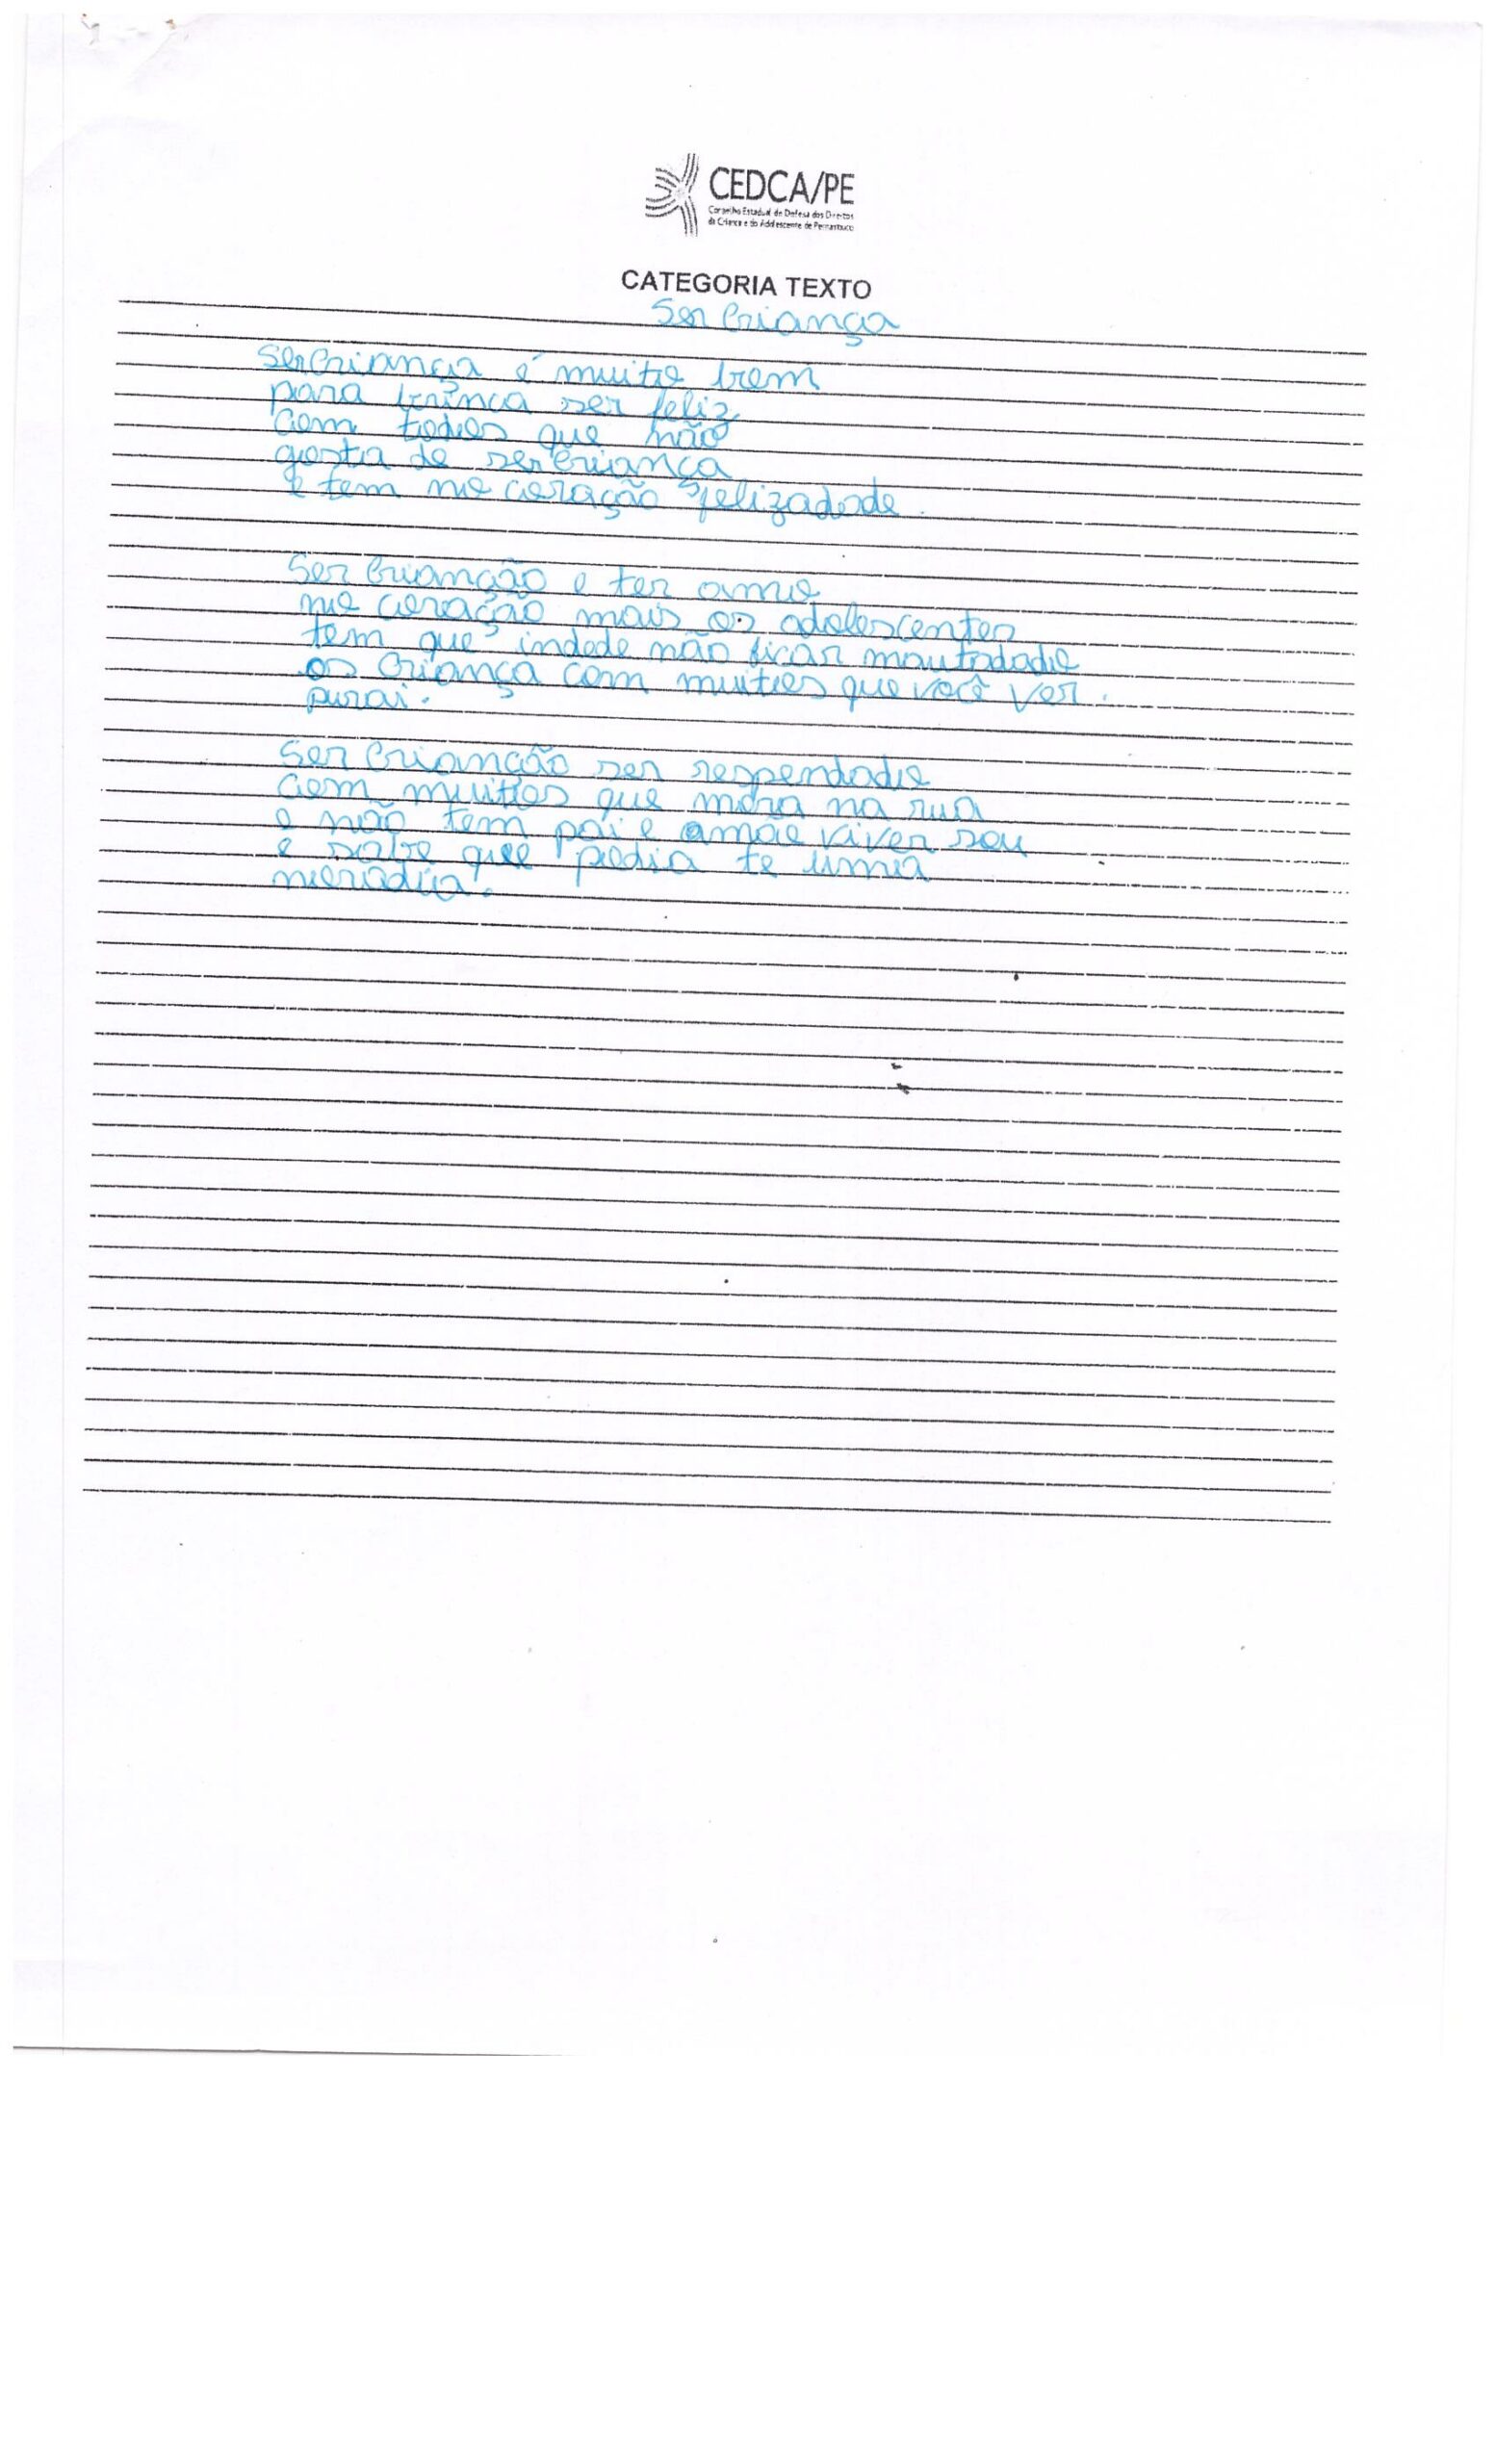 CEDCA/PE
Conselho Estadual de Defesa dos Direitos
da Criança e do Adolescente de Pernambuco
CATEGORIA TEXTO
Ser Criança
Ser Criança é muito bom
para brinca ser feliz
com todos que não
gosta de ser Criança
e tem no coração felizadade.
Ser Criançāo e ter amo
no coração mais os adolescentes
tem que indede não ficar mautadado
os Criança com muitos que você ver.
purai.
Ser Criançāo ser respendado
com muitos que mora na rua
e não tem pai e a mãe viver sou
e sabe que podia te uma
moradia.